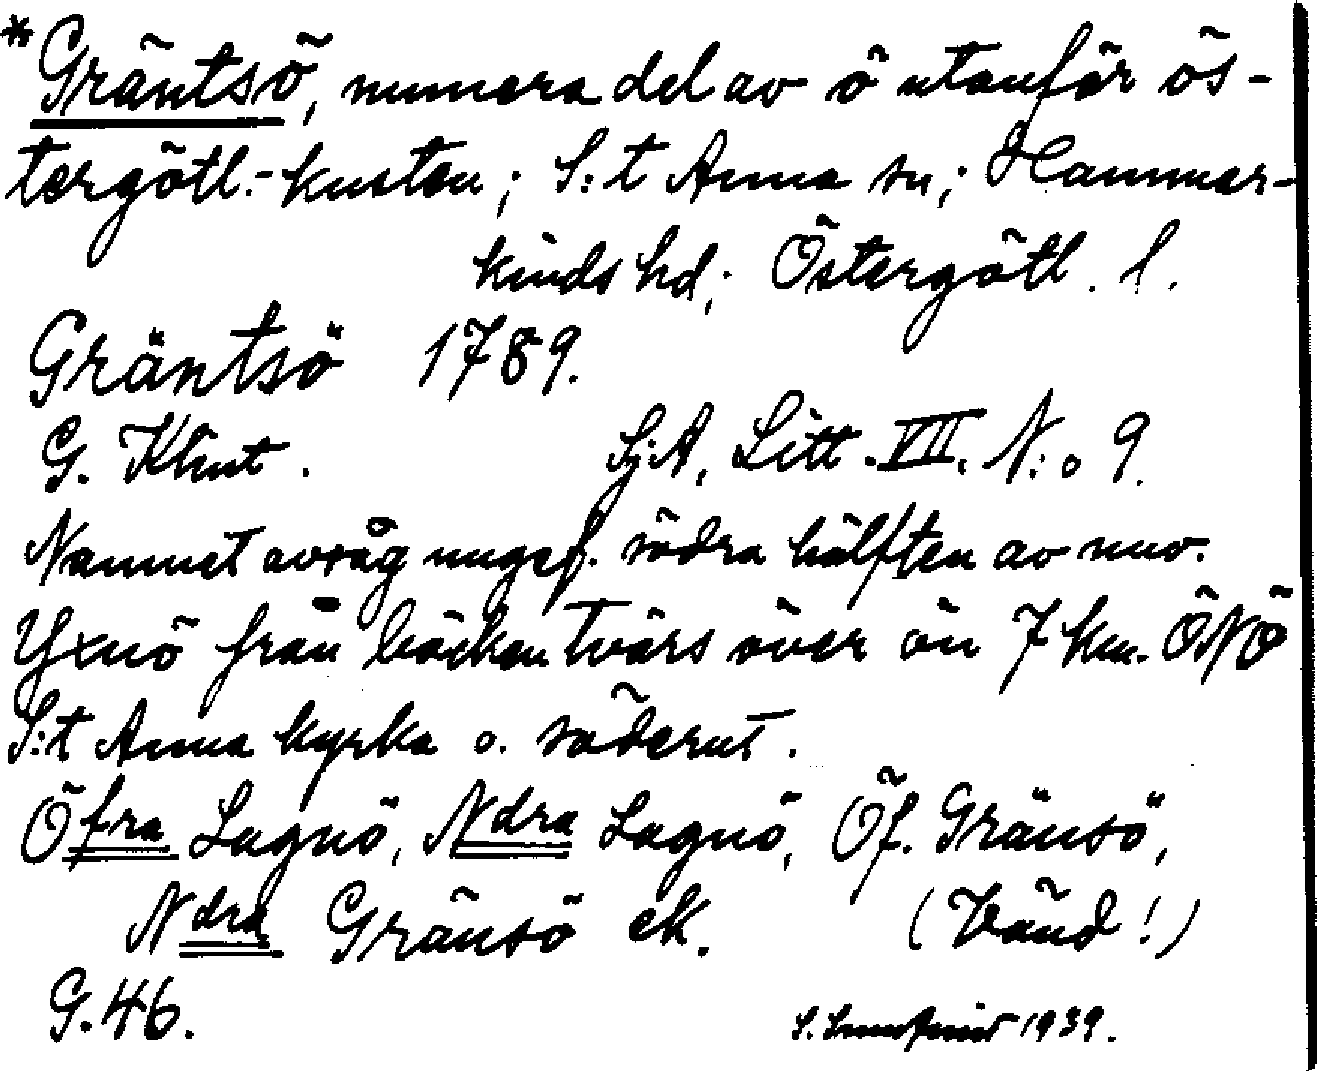 *Gräntsö, numera del av ö utanför ös-
tergötl.-kusten; S:t Anna sn; Hammar-
kinds hd; Östergötl. l.
Gräntsö 1789.
G. Klint. Sj.A, Litt. VII. N:o 9.
Namnet avsåg ungef. södra hälften av nuv.
Yxnö från bäcken tvärs över ön 7 km. ÖNÖ
S:t Anna kyrka o. söderut.
Öfra Lagnö, Ndra Lagnö, Öf. Gränsö,
Ndra Gränsö ek. (Vänd!)
G.46. S. 1939.